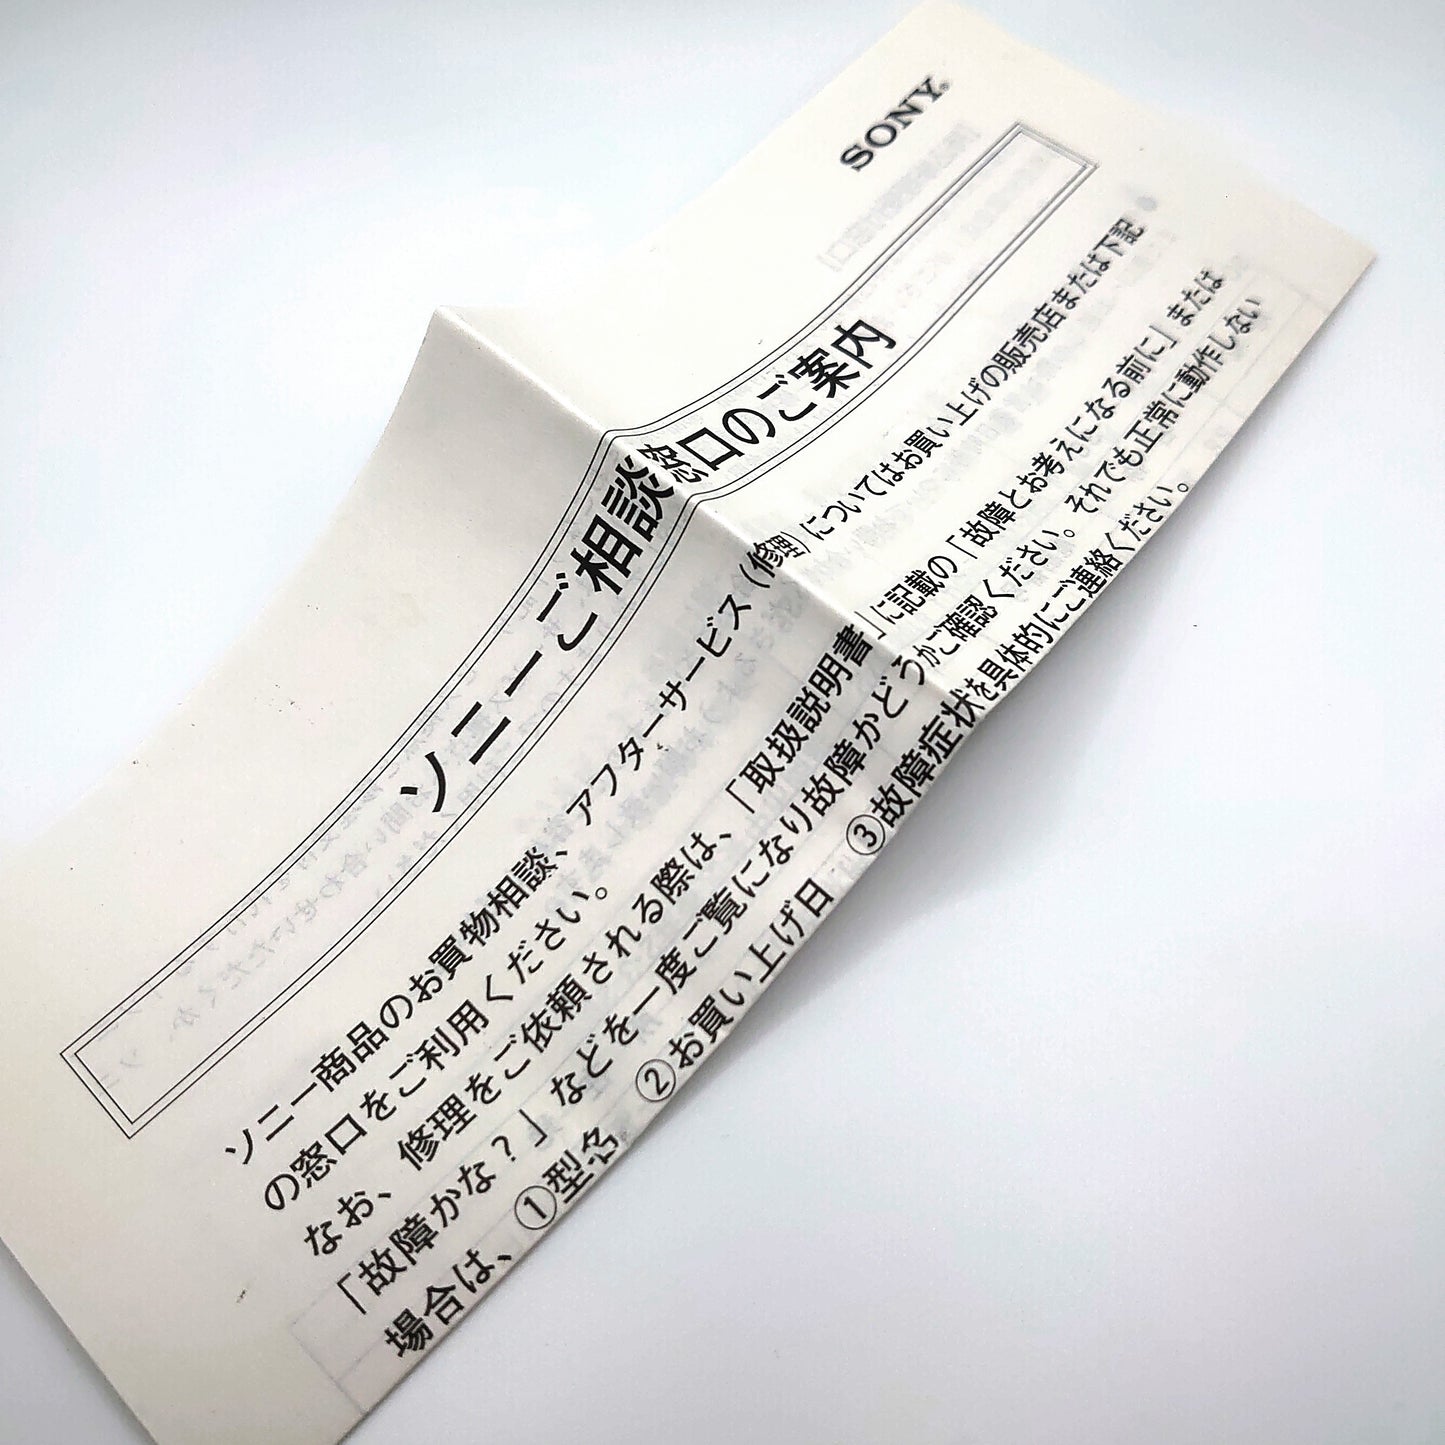 SONY®
ソニーご相談窓口のご案内
ソニー商品のお買物相談、アフターサービス(修理)についてはお買い上げの販売店または下記
の窓口をご利用ください。
なお、修理をご依頼される際は、「取扱説明書」に記載の「故障とお考えになる前に」または
「故障かな?」などを一度ご覧になり故障かどうかご確認ください。それでも正常に動作しない
場合は、①型名 ②お買い上げ日 ③故障症状を具体的にご連絡ください。